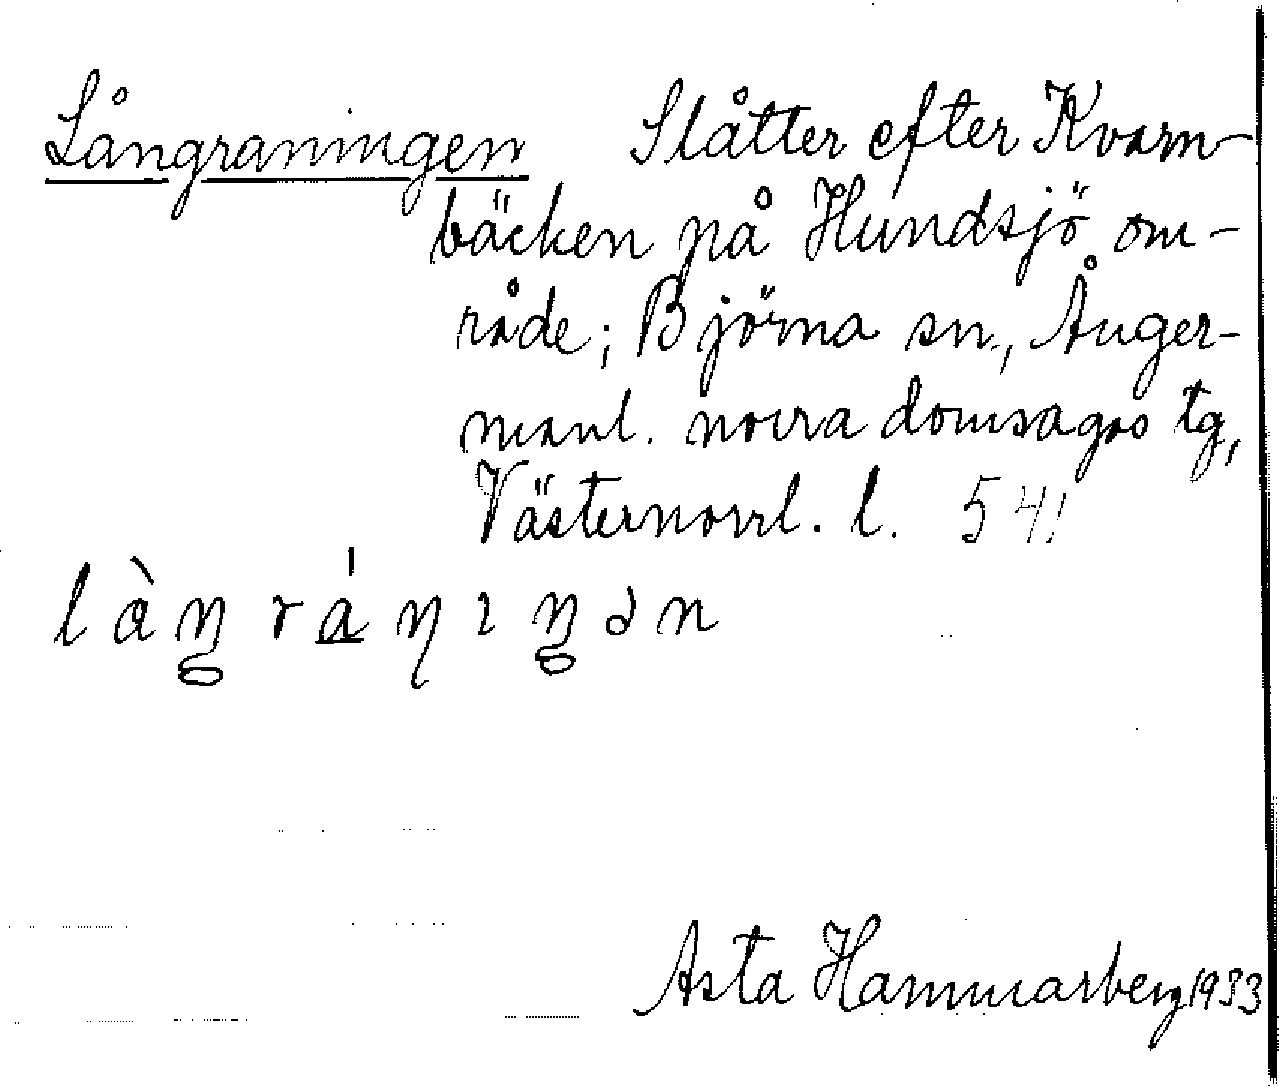 Långraningen Slåtter efter Kvarn-
bäcken på Hundsjö om-
råde; Björna sn., Ånger-
manl. norra domsagas tg,
Västernorrl. l. 541
lὰŋ rá̱ηıŋən
Asta Hammarberg 1933